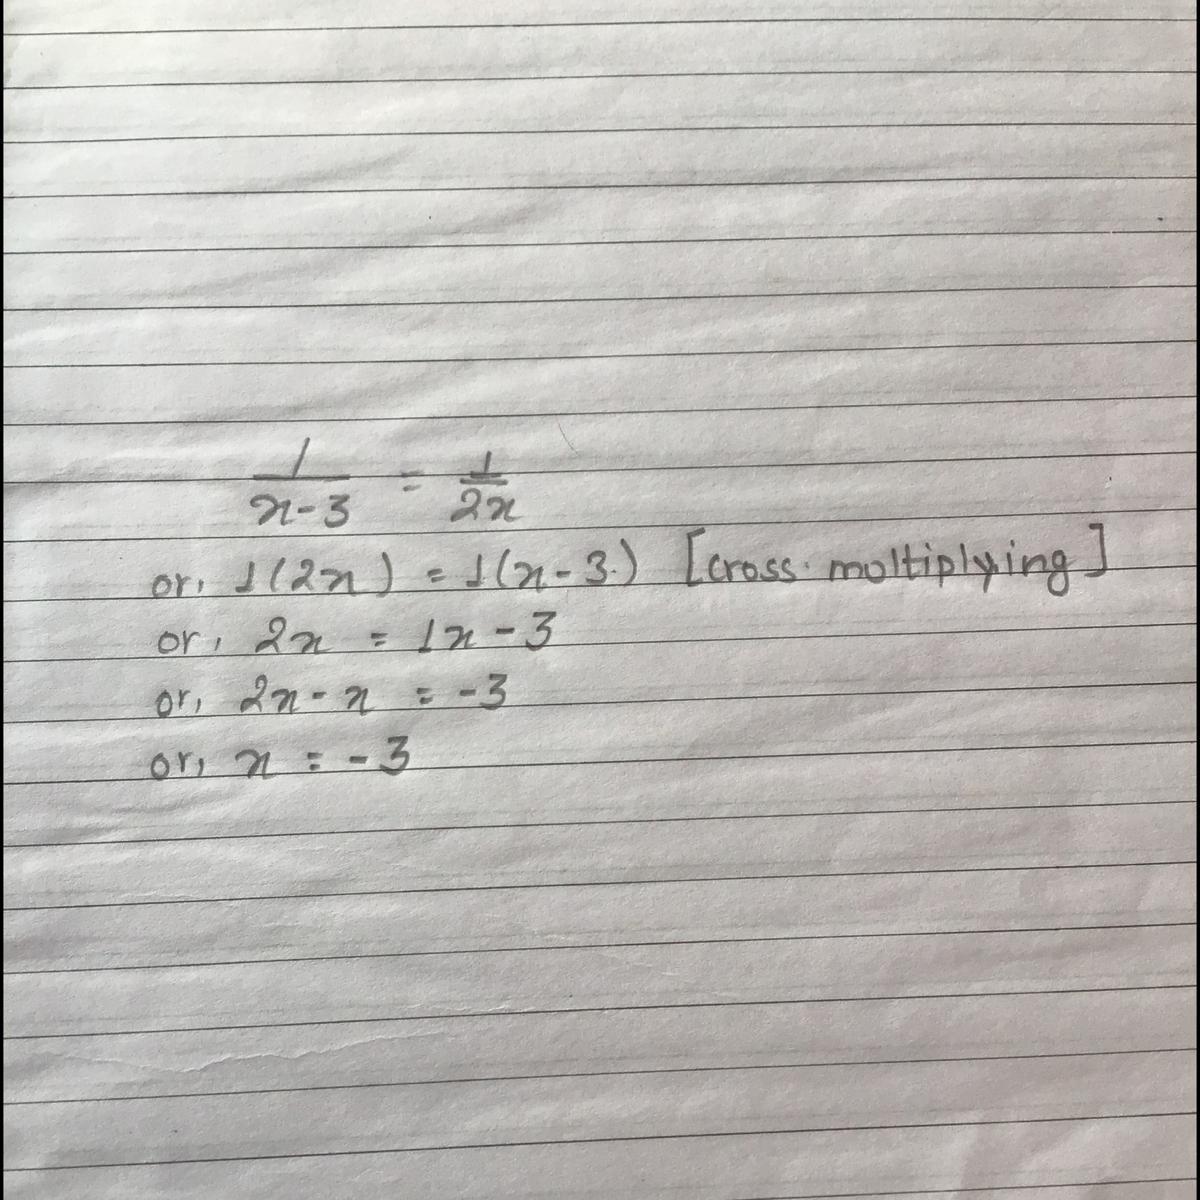 1/(x-3) = 1/2x
or, 1(2x) = 1(x-3) [cross moltiplying]
or, 2x = 1x - 3
or, 2x - x = -3
or, x = -3